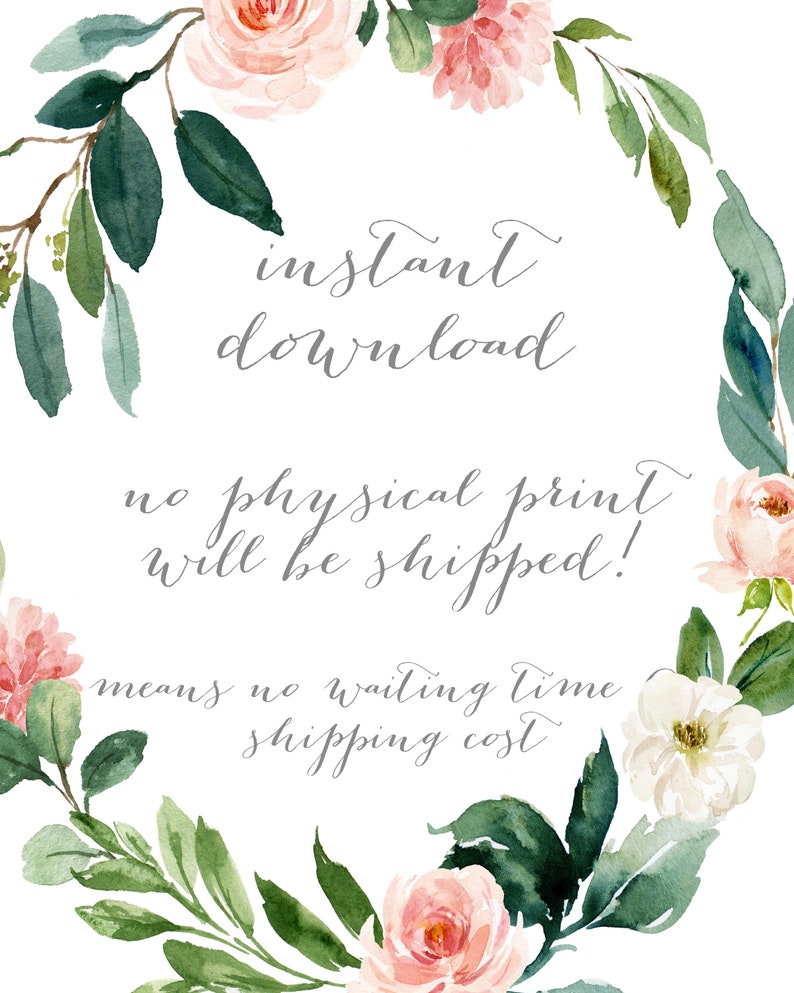 instant
download
no physical print
will be shipped!
means no waiting time
shipping cost